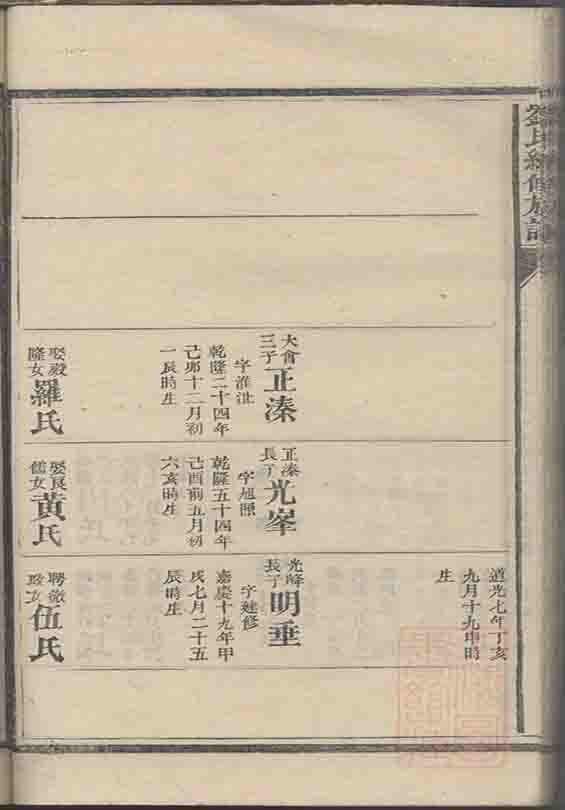 劉氏續修族譜
大會
三子
正溱
字淮沚
乾隆二十四年
己卯十二月初
一辰時生
娶殿
隆女
羅氏
正溱
長子
光峯
字旭照
乾隆五十四年
己酉前五月初
六亥時生
娶良
儒女
黃氏
道光七年丁亥
九月十九申時
生
光峰
長子
明垂
字建修
嘉慶十九年甲
戌七月二十五
辰時生
聘徵
女
伍氏